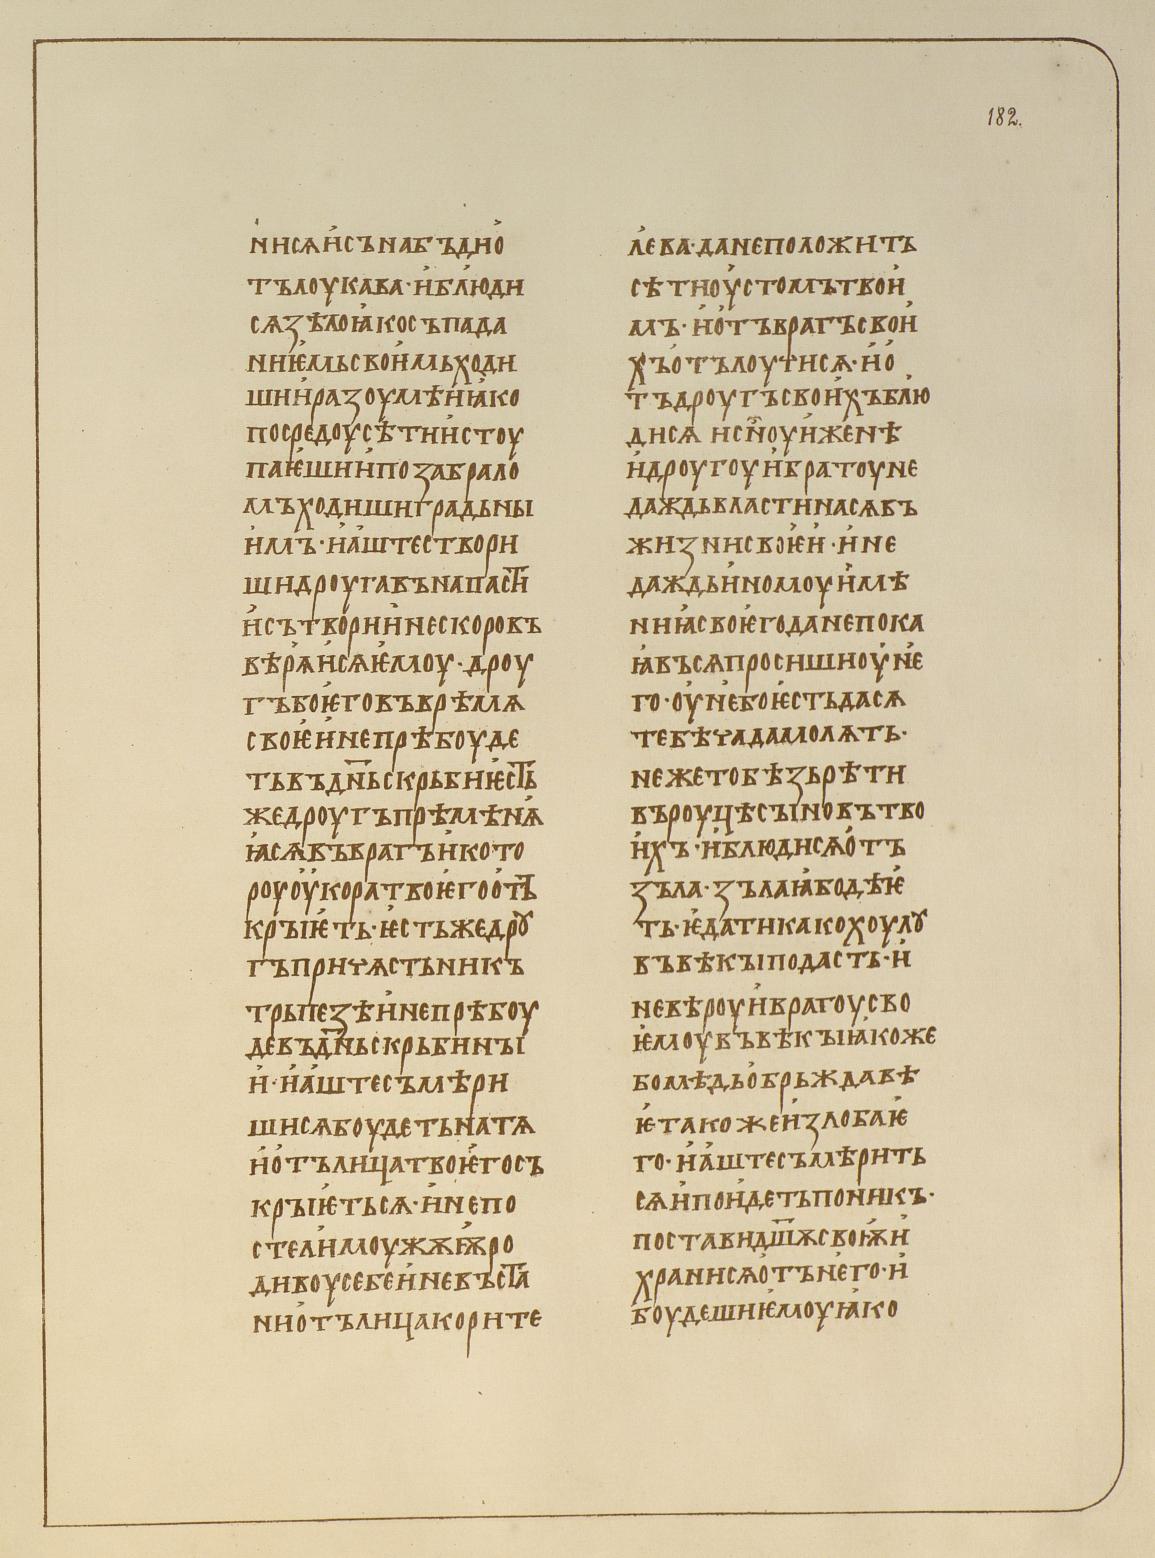 182.
нисѧ исънабъдио
тълоукава· иблюди
сѧ зѣлоꙗкосъпада
ниѥмьсвоимьходи
шииразоумѣиꙗко
посредоусѣтиистоу
паѥшиипозабрало
мъходишиградьны
имъ· иаштествори
шидроугавънапасти
исътвориинескоровъ
вѣрѧисѧѥмоу· дроу
гъбоѥговъврѣмѧ
своѥинепрѣбоуде
тьвъдньскрьбиѥсть
жедроугъпрѣмѣнѧ
ꙗсѧвъврагъикото
роуоукоратвоѥгоотъ
крыѥть· ѥстьжедрꙋ
гъпричѧстьникъ
трьпезѣинепрѣбоу
девъдньскрьбинъı
и· иаштесъмѣри
шисѧбоудетьнатѧ
иотълицатвоѥгосъ
крыѥтьсѧ· инепо
стелимоужѫѭро
дивоусебеиневъста
ниотълицакорите
лева· данеположить
сѣтиоустомътвои
мъ· иотъврагъсвои
хъотълоучисѧ· ио
тъдроугъсвоихъблю
дисѧ исноуиженѣ
идроугоуибратоуне
даждьвластинасѧвъ
жизнисвоѥи· ине
даждьиномоуимѣ
ниꙗсвоѥгоданепока
ꙗвъсѧпросишиоуне
го· оунебоѥстьдасѧ
тебѣчадамолѧть·
нежетобѣзьрѣти
въроуцѣсыновътво
ихъ· иблюдисѧотъ
зъла· зълаꙗбодѣѥ
ть· ѥдатикакохоулꙋ
въвѣкыподасть· и
невѣроуиврагоусво
ѥмоувъвѣкыꙗкоже
бомѣдьобрьждавѣ
ѥтакожеизлобаѥ
го· иаштесъмѣрить
сѧипоидетьпоникъ·
поставидшѫсвоѭи
хранисѧотънего· и
боудешиѥмоуꙗко